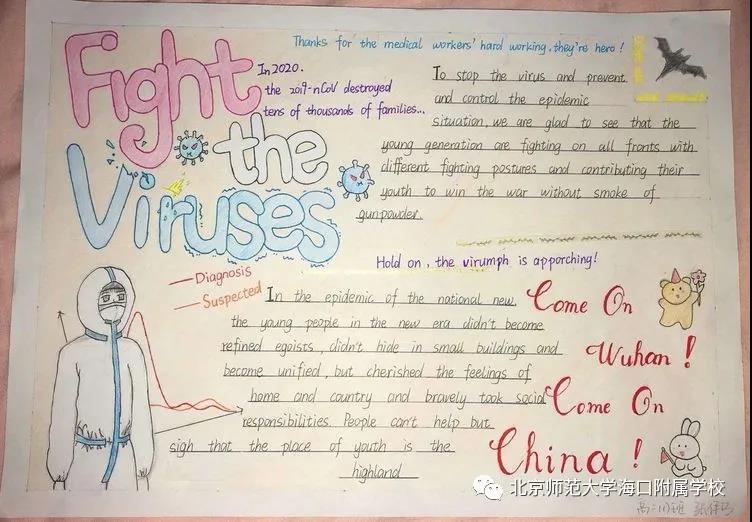 Fight the Viruses
Thanks for the medical workers' hard working, they're hero!
In 2020.
the 2019-nCoV destroyed
tens of thousands of families...
To stop the virus and prevent
and control the epidemic
situation, we are glad to see that the
young generation are fighting on all fronts with
different fighting postures and contributing their
youth to win the war without smoke of
gunpowder.
Hold on, the virumph is apporching!
Diagnosis
Suspected
In the epidemic of the national new,
the young people in the new era didn't become
refined egoists, didn't hide in small buildings and
become unified, but cherished the feelings of
home and country and bravely took social
responsibilities. People can't help but
sigh that the place of youth is the
highland
Come On
Wuhan!
Come On
China!
北京师范大学海口附属学校